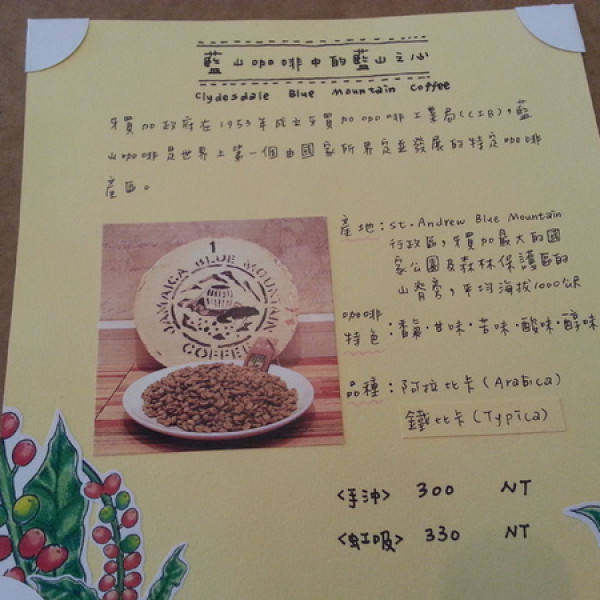 藍山咖啡中的藍山之心
Clydesdale Blue Mountain Coffee
牙買加政府在1953年成立牙買加咖啡工業局(CIB)，藍
山咖啡是世界上第一個由國家所界定並發展的特定咖啡
產區。
產地：St. Andrew Blue Mountain
行政區，牙買加最大的國
家公園及森林保護區的
山脊旁，平均海拔1000公尺
咖啡
特色：香氣・甘味・苦味・酸味・醇味
品種：阿拉比卡(Arabica)
鐵比卡(Typica)
<手沖> 300 NT
<虹吸> 330 NT
1
JAMAICA BLUE MOUNTAIN
COFFEE